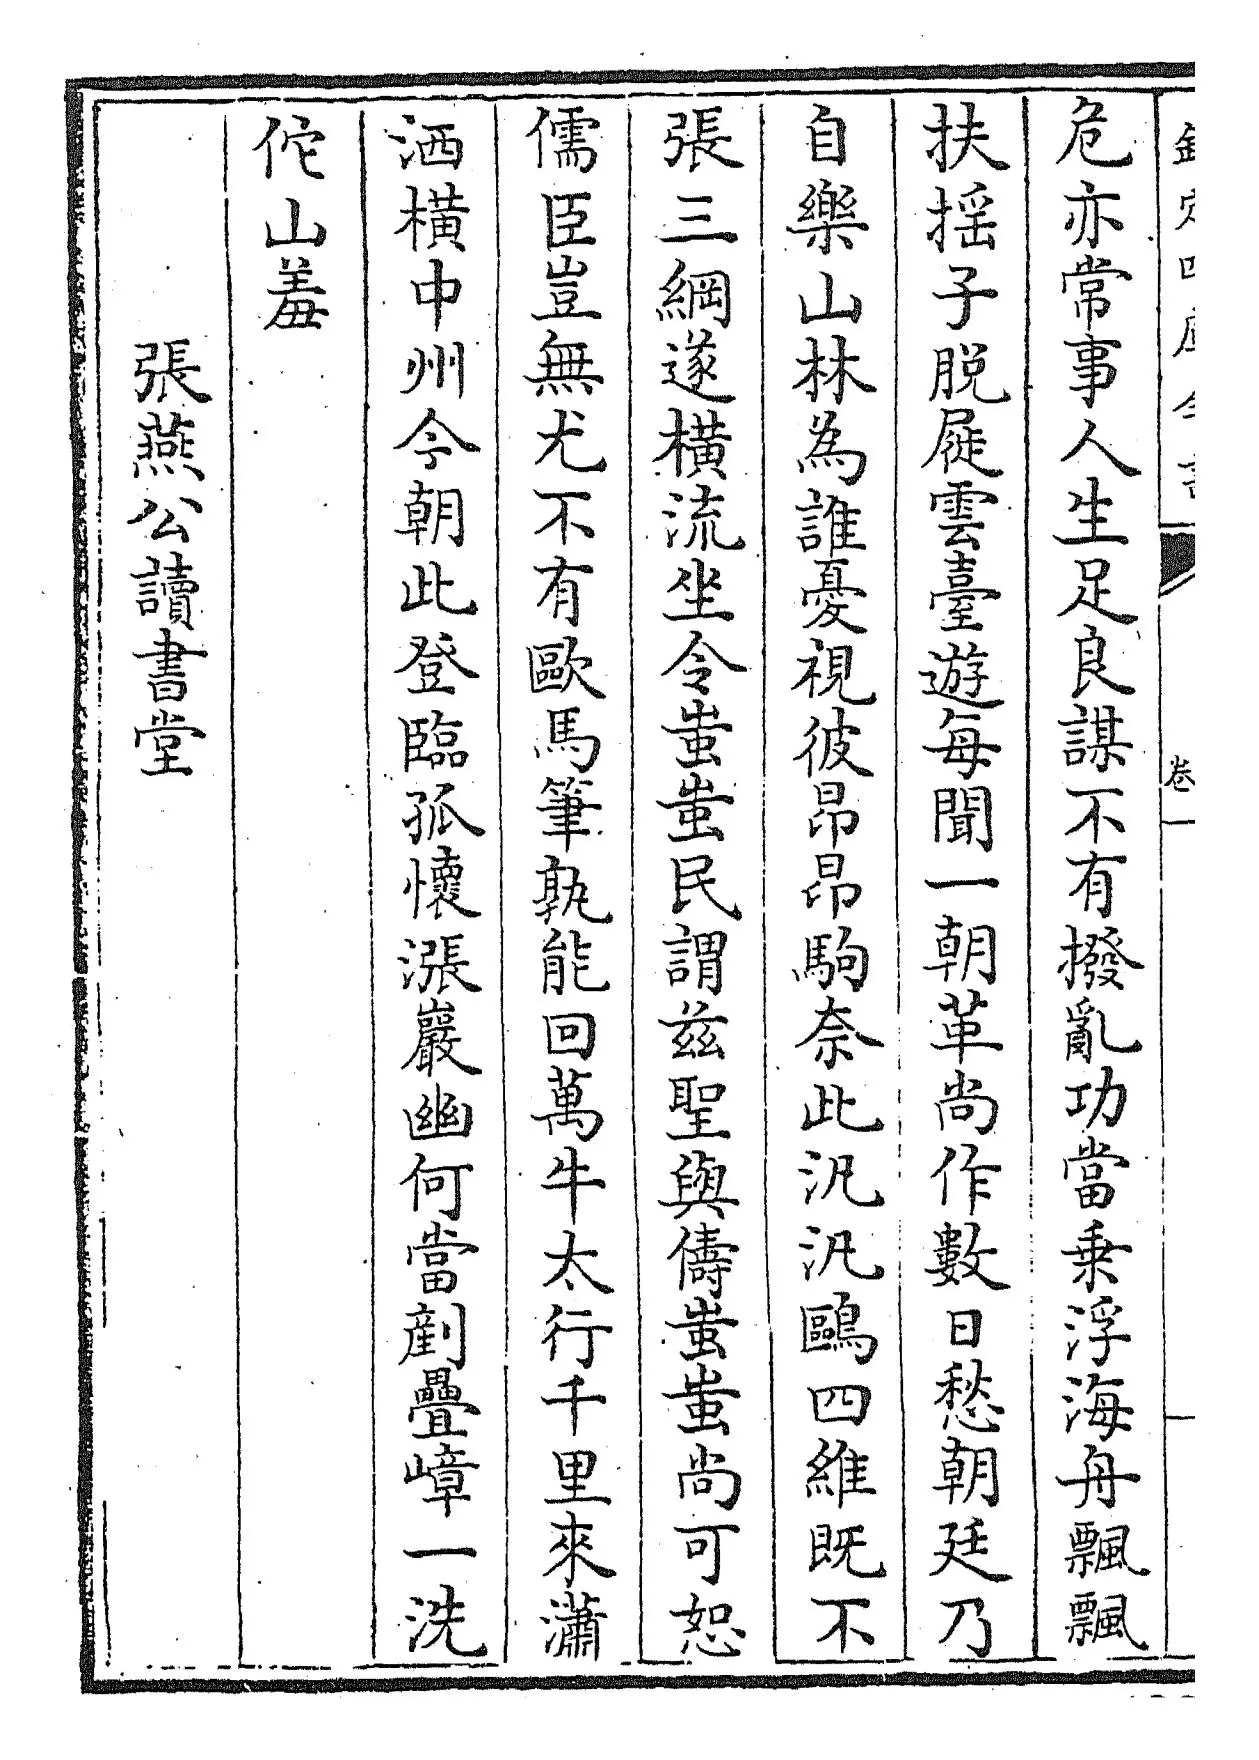 欽定四庫全書 卷一
危亦常事人生足良謀不有撥亂功當乗浮海舟飄飄
扶揺子脱屣雲臺遊每聞一朝革尚作數日愁朝廷乃
自樂山林為誰憂視彼昂昂駒奈此汎汎鷗四維既不
張三綱遂横流坐令蚩蚩民謂兹聖與儔蚩蚩尚可恕
儒臣豈無尤不有歐馬筆孰能回萬牛太行千里來瀟
洒横中州今朝此登臨孤懷漲巖幽何當剷疊嶂一洗
佗山羞
張燕公讀書堂